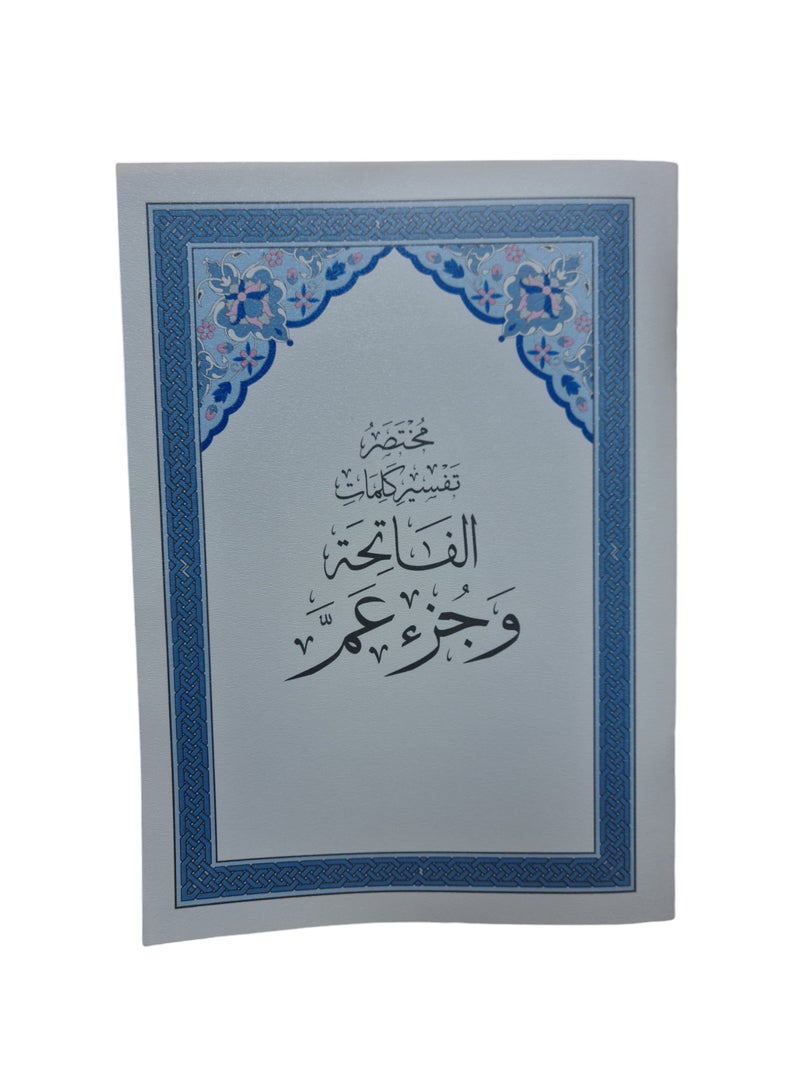 مُخْتَصَرُ
تَفْسِيرِ كَلِمَاتِ
الفَاتِحَةِ
وَجُزْءِ عَمَّ